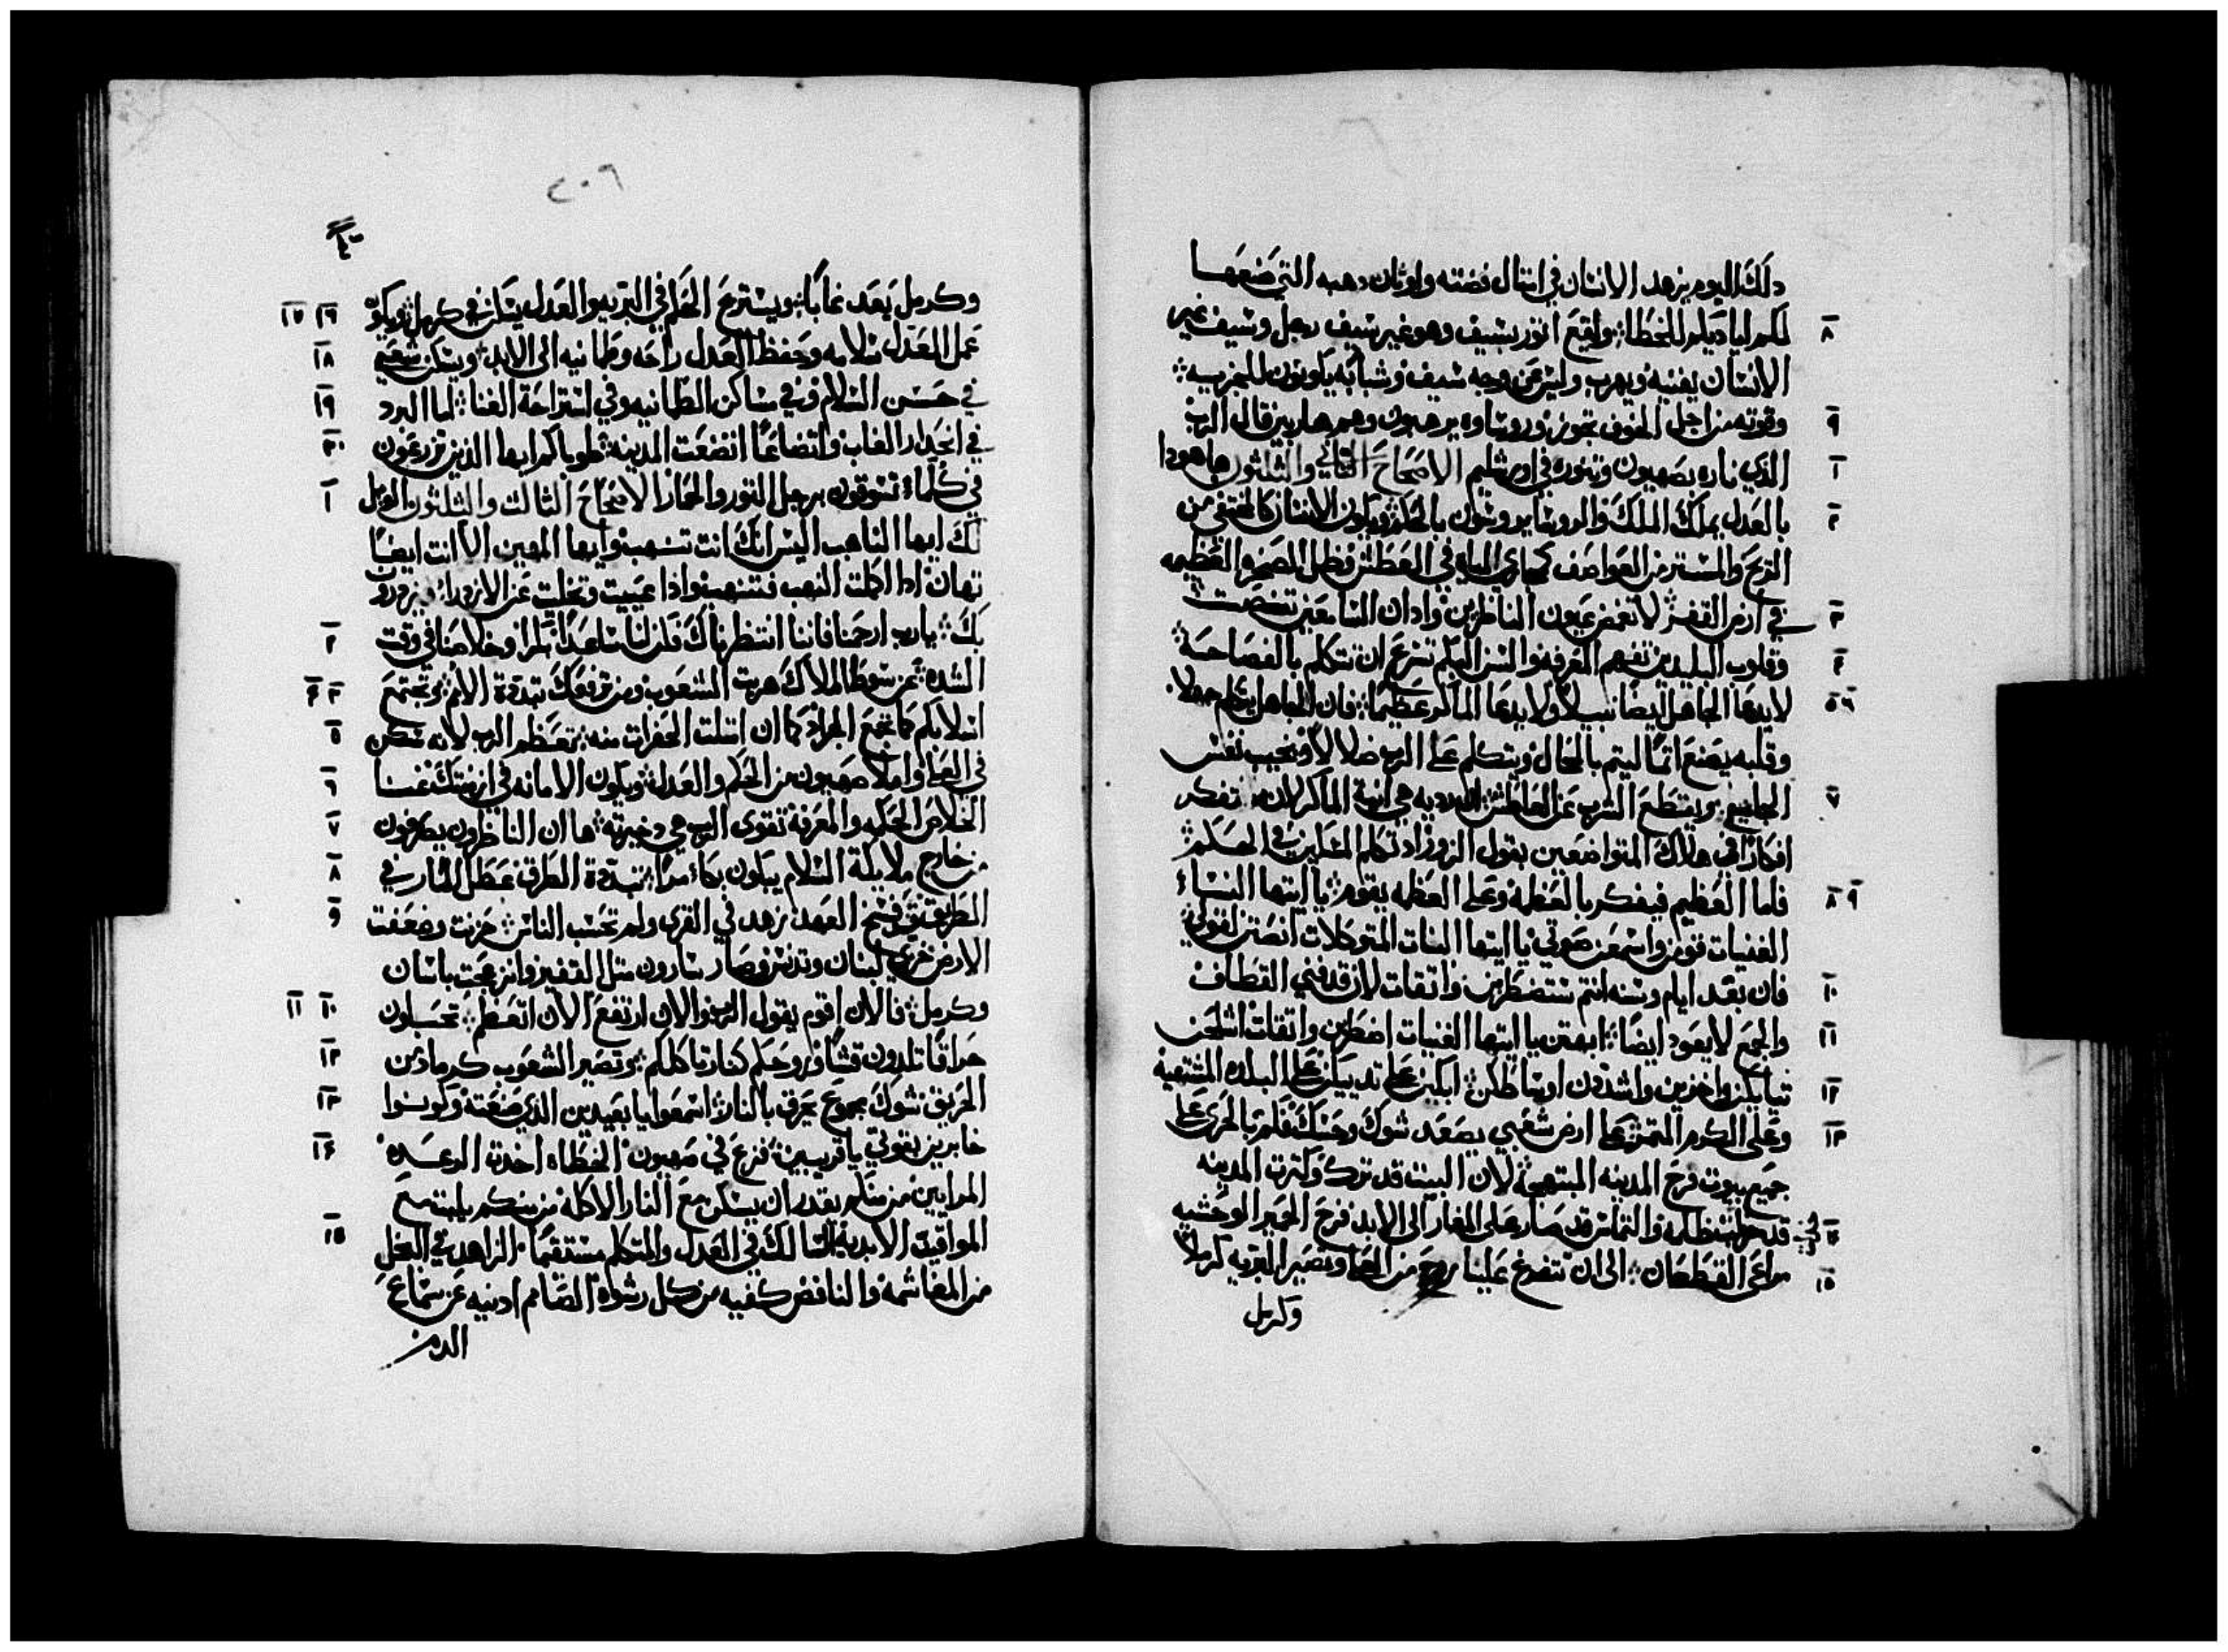 دلك اليوم يزهد الانسان في امتال فضته واوتان دهبه التي صنعها
٨ لكم اياديكم للخطا ويقع اتور بسيف وهو غير سيف رجل وسيف غير
الانسان يفنيه ويهرب وليس عن وجه سيف وشبابه يكونون للجزيه
٩ وقوته من اجل الخوف تجوز وروساوه يرهبون وهم هاربين قال الرب
١ الذي ناره بصهيون وتنوره في اورشليم الاصحاح التاني والتلتون ها هودا
٢ بالعدل يملك الملك والروسا يروسون بالحكم ويكون الانسان كالمختفي من
الريح والمستتر من العواصف كمجاري المياه في العطش وظل الصخره العظيمه
٣ في ارض القفر لا تغمض عيون الناظرين وادان السامعين تنصت
٤ وقلوب البليدين تفهم المعرفه والسن البكم تسرع ان تتكلم بالفصاحه
٥ ٦ لا يدعا الجاهل ايضا نبيلا ولا يدعا الماكر عظيما فان الجاهل يتكلم جهلا
وقلبه يصنع اتما ليتم بالمحال ويتكلم على الرب ضلالا ويخيب نفس
٧ الجايع ويقطع الشرب عن العاطش اردديه هي انية الماكر لانه تفكر
افكارا في هلاك المتواضعين بقول الزور اد تكلم المسكين في الحكم
٨ ٩ فاما العظيم فيفكر بالعظمه وعلى العظمه يقوم يا ايتها النسا
الغنيات قومن واسمعن صوتي يا ايتها البنات المتوكلات انصتن لقولي
١٠ فان بعد ايام وسنه انتم ستضطربن واتقات لان قد فني القطاف
١١ والجمع لا يعود ايضا ابهتن يا ايتها الغنيات اضطربن واتقات اشلحن
١٢ تيابكن واخزين واشددن اوساطكن ابكين على تدييكن على البلده المشتهيه
١٣ وعلى الكرم المتمر على ارض شعبي يصعد شوك وحسك فكم بالحري على
جميع بيوت فرح المدينه المبتهجه لان البيت قد ترك وكترت المدينه
١٤ قد خليت ظلمه والتماس قد صار على المغاير الى الابد فرح الحمير الوحشيه
١٥ مراعي القطعان الى ان تفرغ علينا روح من العلا وتصير البريه كرملا
وكرمل
٢٠٦
وكرمل يعد غابا ويستريح الحكم في البريه والعدل يسكن في كرمل ويكون ١٦ ١٧
عمل العدل سلامه وحفظ العدل راحه وطمانيه الى الابد ويسكن شعبي ١٨
في حسن السلام وفي مساكن الطمانيه وفي استراحة الغنا اما البرد ١٩
في انحدار الغاب واتضاعا اتضعت المدينه طوباكم ايها الذين تزرعون ٢٠
في كلما تسوقون برجل التور والحمار الاصحاح التالت والتلتون الويل ١
لك ايها الناهب اليس انك انت تنهب وايها المهين الا انت ايضا
تهان ادا اكملت النهب فتنهب وادا عييت وتخليت عن الازدرا يزدرون
بك يا رب ارحمنا فاننا انتظرناك فكن لنا ساعدا باكرا وخلاصنا في وقت ٢
الشده من صوت الملاك هربت الشعوب ومن ترفعك تبددة الامم وتجتمع ٣ ٤
اسلابكم كما تجمع الجراد كما ان امتلت الحفرات منه تعظم الرب لانه سكن ٥
في العلا واملا صهيون من الحكم والعدل ويكون الامانه في ازمنتك غنا ٦
الخلاص الحكمه والمعرفة تقوى الرب هي دخيرته ها ان الناظرون يصرخون ٧
من خارج ملايكة السلام يبكون بكا مرا تبددة الطرق عطل المار في ٨
الطريق فسخ العهد زهد في القرى ولم تحسب الناس حزنت وضعفت ٩
الارض خزي لبنان وتدنس وصار سارون متل القفير وانزعجت باسان
وكرمل فالان اقوم يقول الرب والان ارتفع الان اتعظم تحبلون ١٠ ١١
حراقا تلدون قشا وروحكم كنار تاكلكم وتصير الشعوب كرماد من ١٢
الحريق شوك مجموع يحرق بالنار اسمعوا يا بعيدين الذي صنعته وكونوا ١٣
خابرين بقوتي يا قريبين فزع في صهيون الخطاه اخدت الرعده ١٤
المرايين من منكم يقدر ان يسكن مع النار الاكله من منكم يلبت مع
المواقيد الابديه السالك في العدل والمتكلم مستقيما الزاهد في البخل ١٥
من الغاشمه والنافض كفيه من كل رشوه الصامم ادنيه عن سماع
الدم